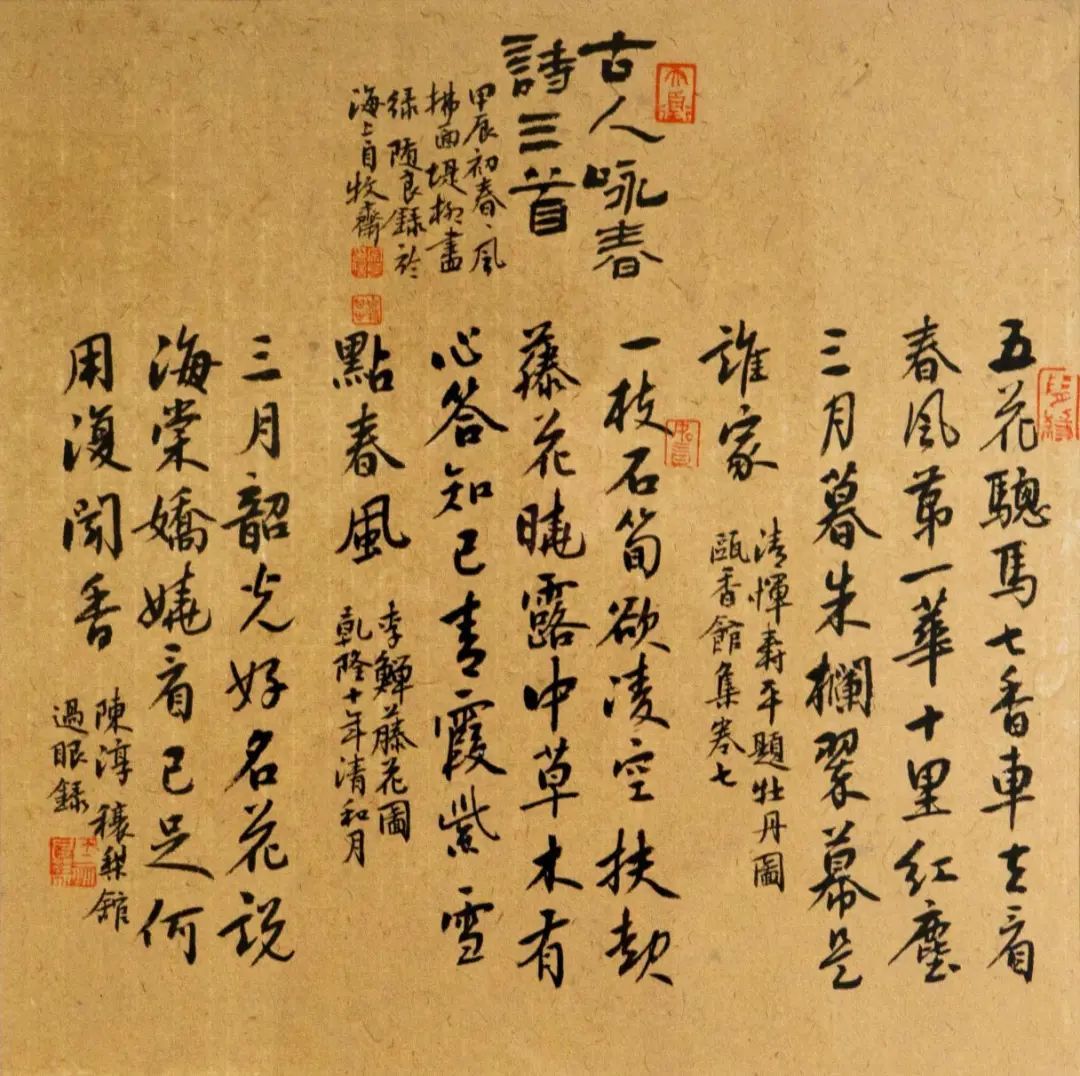 古人咏春
詩三首
甲辰初春、風
拂面堤柳盡
綠随良録於
海上自牧齋
五花驄馬七香車去看
春風第一華十里紅塵
三月暮朱欄翠幕是
誰家
清惲壽平題牡丹圖
甌香館集卷七
一枝石筍欲凌空扶
藤花曉露中草木有
心答知已青霞紫雪
點春風
李鱓藤花圖
乾隆十年清和月
三月韶光好名花說
海棠嬌嬈看已足何
用復聞香
陳淳穰梨館
過眼録